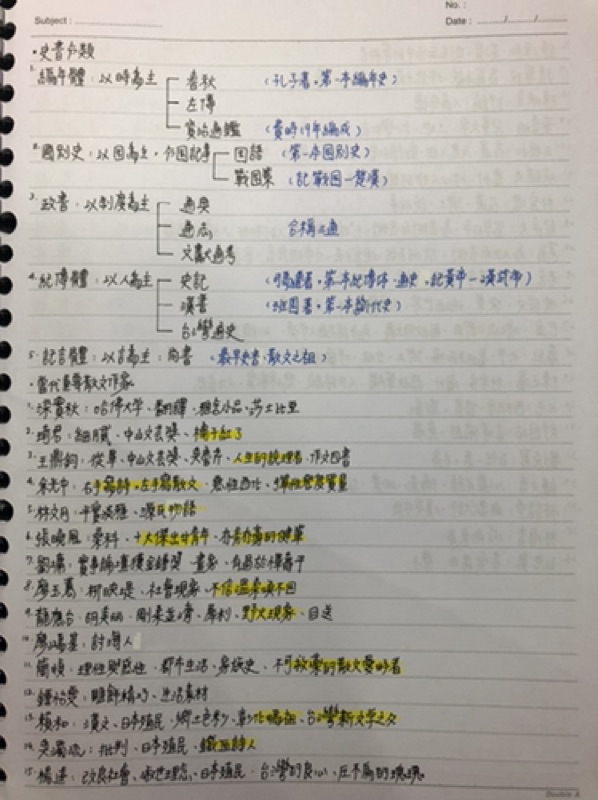 No. :
Subject :
Date : / /
•史書分類
1.編年體：以時為主 春秋 (孔子著。第一本編年史)
左傳
資治通鑑 (費時19年編成)
2.國別史：以國為主，分國記事 國語 (第一本國別史)
戰國策 (記戰國—楚漢)
3.政書：以制度為主 通典
通志 合稱三通
文獻通考
4.紀傳體：以人為主 史記 (司馬遷著。第一本紀傳体。通史。記黃帝—漢武帝)
漢書 (班固著。第一本斷代史)
台灣通史
5.記言體：以言為主：尚書 。最早史書、散文之祖)
•當代重要散文作家
1.梁實秋：哈佛大學、翻譯、雅舍小品、莎士比亞
2.琦君：細膩、中山文藝獎、橘子紅了
3.王鼎鈞：從軍、中山文藝獎、吳魯芹、人生的說理者、作文四書
4.余光中：右手寫詩、左手寫散文
5.林文月：平實淡雅、源氏物語
6.張曉風：十大傑出女青年、亦秀亦豪的健筆
7.劉墉
8.廖玉蕙：柳映堤、社會現象、不信溫柔喚不回
9.龍應台：胡美麗、剛柔並濟、犀利、野火現象、目送
10.廖鴻基：討海人
11.簡媜：理性與感性、都市生活、家族史、不可救藥的散文愛好者
12.鍾怡雯：生活素材
13.賴和：漢文、日本殖民、鄉土色彩、彰化媽祖、台灣新文學之父
14.吳濁流：批判、日本殖民、鐵血詩人
15.楊逵：改良社會、日本殖民、台灣的良心、壓不扁的玫瑰
Double A